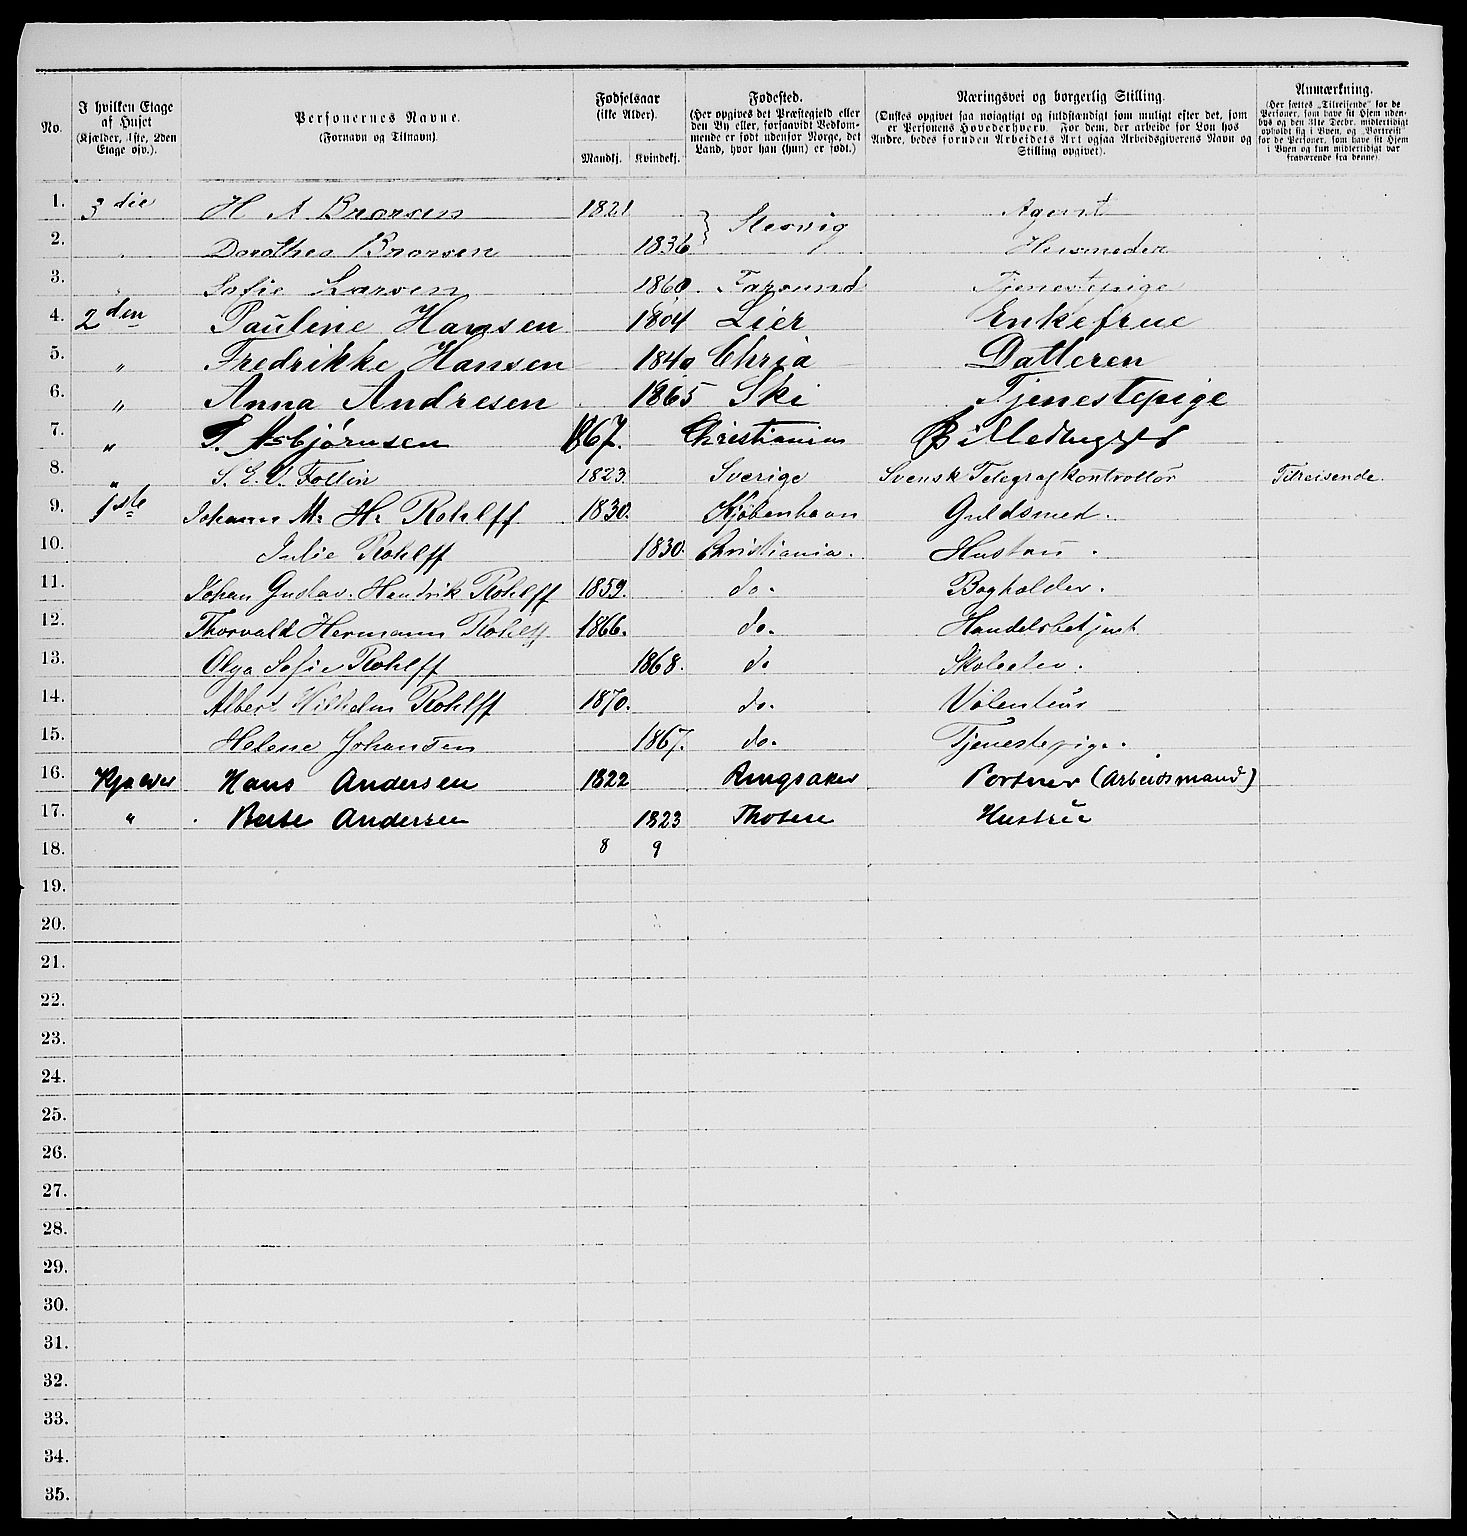 No. I hvilken Etage af Huset (Kjælder, 1ste, 2den Etage osv.). Personernes Navne. (Fornavn og Tilnavn). Fødselsaar (ikke Alder). Mandkj. Kvindekj. Fødested. (Her opgives det Præstegjeld eller den By eller, forsaavidt Vedkommende er født udenfor Norge, det Land, hvor han (hun) er født.) Næringsvei og borgerlig Stilling. (Ønskes opgivet saa nøiagtigt og fuldstændigt som muligt efter det, som er Personens Hovederhverv. For dem, der arbeide for Løn hos Andre, bedes foruden Arbeidets Art ogsaa Arbeidsgiverens Navn og Stilling opgivet). Anmærkning. (Her sættes „Tilreisende" for de Personer, som have sit Hjem udenbys og den 31te Decbr. midlertidigt opholdt sig i Byen, og „Bortreist" for de Personer, som have sit Hjem i Byen og kun midlertidigt var fraværende fra denne).
1. 3die H A Brorsen 1821 } Slesvig Agent
2. " Dorothea Brorsen 1836 Husmoder
3. " Sofie Larsen 1860 Farsund Tjenestepige
4. 2den Pauline Hansen 1804 Lier Enkefrue
5. " Fredrikke Hansen 1840 Chria Datteren
6. " Anna Andresen 1865 Ski Tjenestepige
7. " Asbjørnsen 1867. Christiania Billedhugger
8. " S. E. Follin 1823 Sverige Svensk Telegrafkontrollør Tilreisende.
9. 1ste Johann M. H. Rohlff 1830. Kjøbenhavn Guldsmed.
10. Julie Rohlff 1830. Christiania. Hustru.
11. Johan Gustav Hendrik Rohlff 1859. do. Bogholder.
12. Thorvald Hermann Rohlff 1866. do. Handelsbetjent
13. Olga Sofie Rohlff 1868. do Skoleelev.
14. Albert Wilhelm Rohlff 1870. do. Volentør
15. Helene Johansen 1867. do. Tjenestepige.
16. Kjælder Hans Andersen 1822 Ringsaker Portner (Arbeidsmand)
17. " Berte Andersen 1823 Thoten Hustrue
18. 8 9
19.
20.
21.
22.
23.
24.
25.
26.
27.
28.
29.
30.
31.
32.
33.
34.
35.